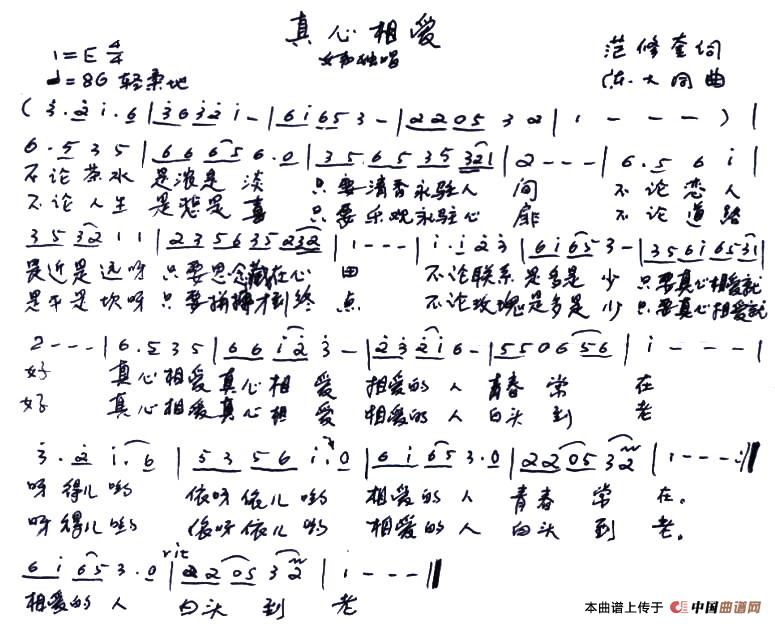 真心相爱
女声独唱
1=E 4/4
范修奎词
♩=86 轻柔地
陈大同曲
( 3. 2 i. 6 | 3 6 3 2 i - | 6 i 6 5 3 - | 2 2 0 5 3 2 | 1 - - - ) |
6. 5 3 5 | 6 6 6 5 6. 0 | 3 5. 6 5 3 5 3 2 1 | 2 - - - | 6. 5 6 i |
不论茶水 是浓是淡 只要清香永驻人间 不论恋人
不论人生 是愁是喜 只要乐观永驻心扉 不论道路
3 5 3 2 1 1 | 2 3 5 6 3 5 2 3 2 | 1 - - - | i. i 2 3 | 6 i 6 5 3 - | 3 5 6 i 6 5 3 1 |
是近是远呀 只要思念藏在心田 不论联系是多是少 只要真心相爱就
是平是坎呀 只要拼搏才到终点 不论玫瑰是多是少 只要真心相爱就
2 - - - | 6. 5 3 5 | 6 6 i 2 3 - | 2 3 2 i 6 - | 5 5 0 6 5 6 | i - - - |
好 真心相爱真心相爱 相爱的人青春常在
好 真心相爱真心相爱 相爱的人白头到老
3. 2 i. 6 | 5 3 5 6 i. 0 | 6 i 6 5 3. 0 | 2 2 0 5 3 2 | 1 - - - :||
呀得儿哟 依呀依儿哟 相爱的人 青春常在。
呀得儿哟 依呀依儿哟 相爱的人 白头到老。
rit
6 i 6 5 3. 0 | 2 2 0 5 3 2 | 1 - - - ||
相爱的人 白头到老
本曲谱上传于 中国曲谱网